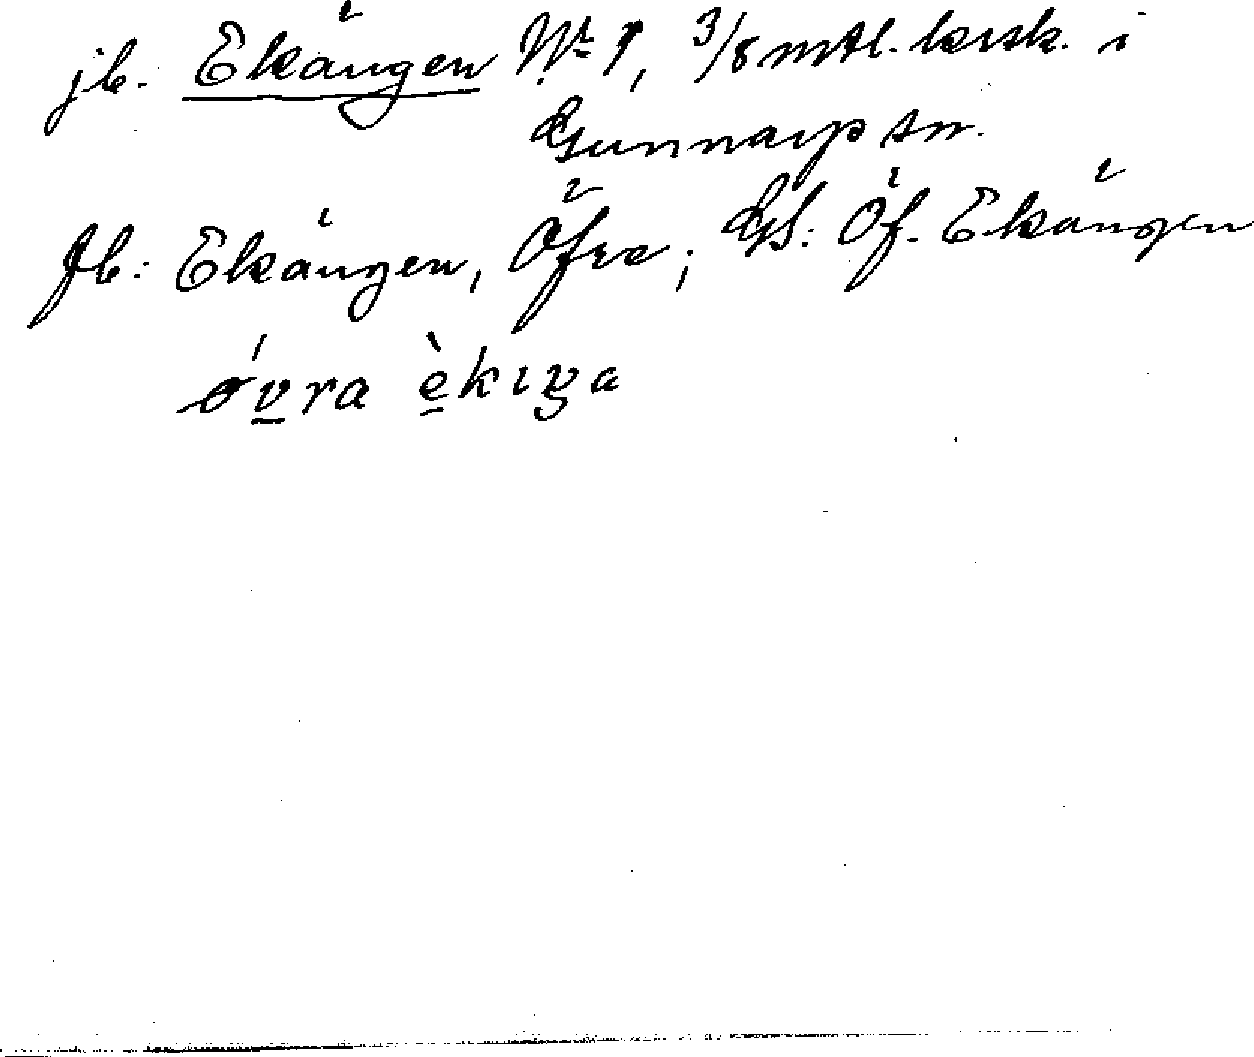 jb. Ekängen Nr 1, 3/8 mtl. krsk. i
Gunnarp sn.
Jb: Ekängen, Öfre; Gs: Öf. Ekängen